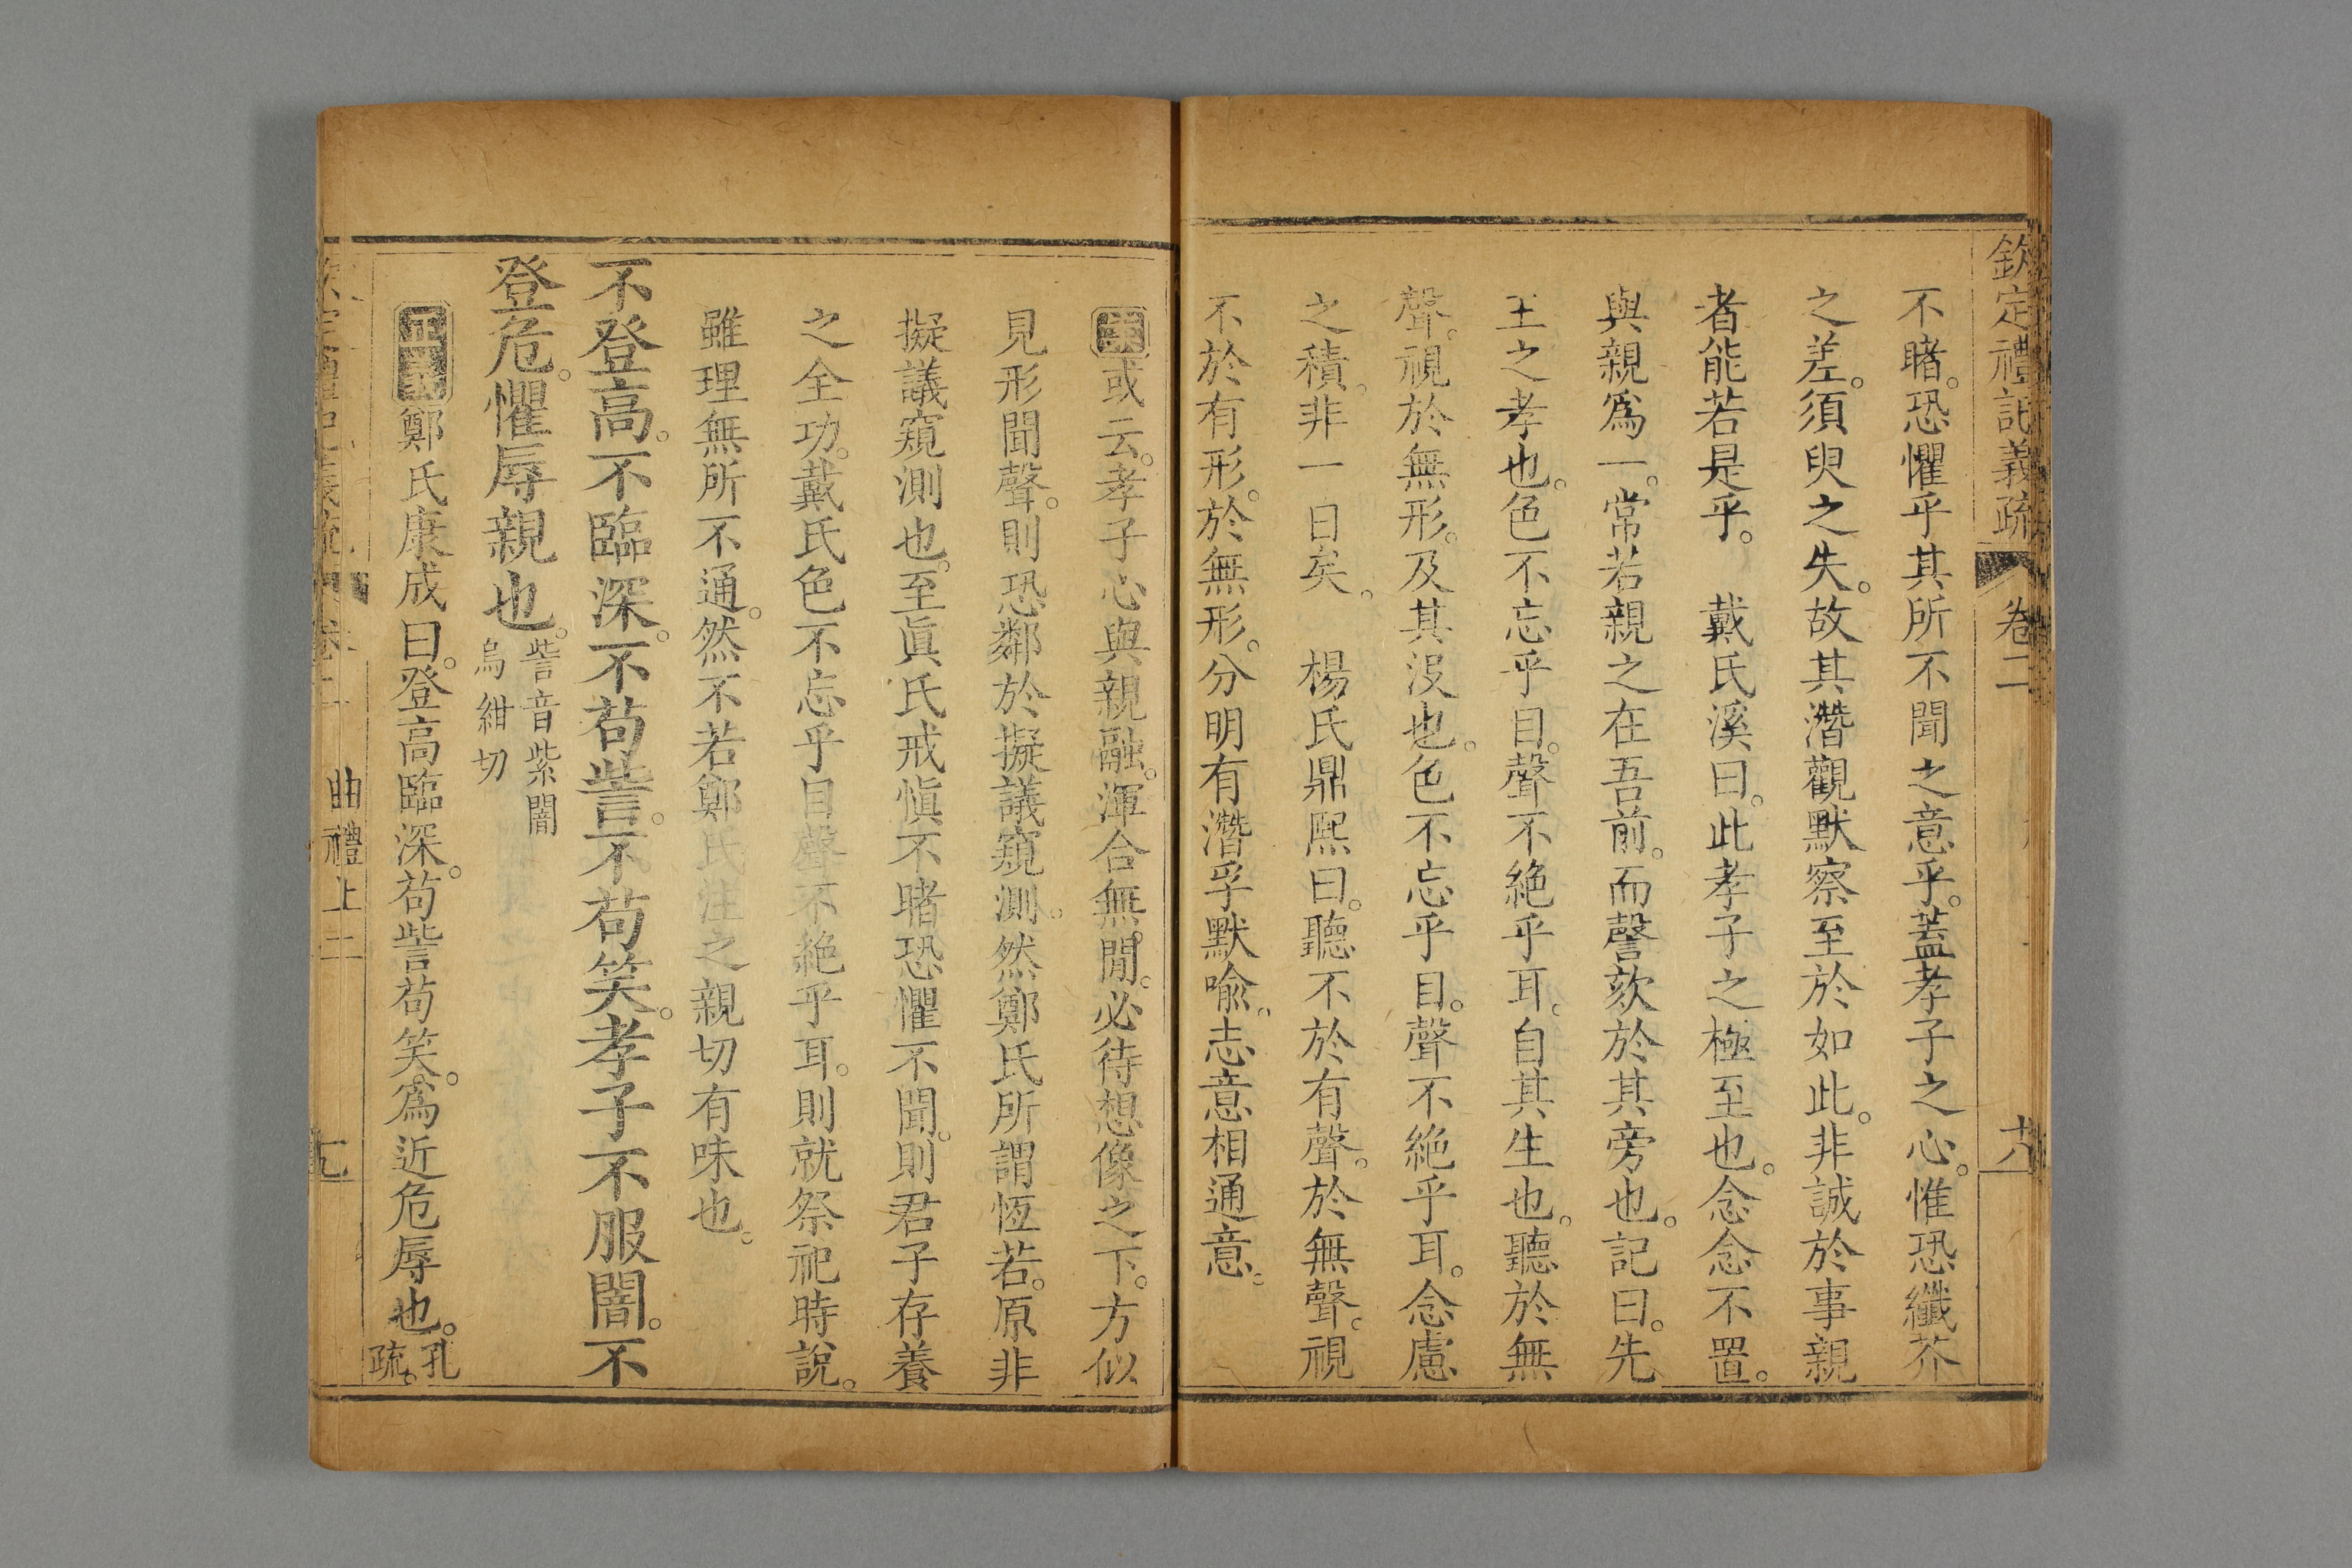 欽定禮記義疏 卷二 十八
不睹。恐懼乎其所不聞之意乎。蓋孝子之心。惟恐纖芥
之差。須臾之失。故其潛觀默察至於如此。非誠於事親
者能若是乎。 戴氏溪曰。此孝子之極至也。念念不置。
與親爲一。常若親之在吾前。而謦欬於其旁也。記曰。先
王之孝也。色不忘乎目。聲不絶乎耳。自其生也。聽於無
聲。視於無形。及其沒也。色不忘乎目。聲不絶乎耳。念慮
之積。非一日矣。 楊氏鼎熙曰。聽不於有聲。於無聲。視
不於有形。於無形。分明有潛孚默喩。志意相通意。
案或云。孝子心與親融。渾合無閒。必待想像之下。方似
見形聞聲。則恐鄰於擬議窺測。然鄭氏所謂恆若。原非
擬議窺測也。至眞氏戒愼不睹恐懼不聞。則君子存養
之全功。戴氏色不忘乎目聲不絶乎耳。則就祭祀時說。
雖理無所不通。然不若鄭氏注之親切有味也。
不登高。不臨深。不苟訾。不苟笑。孝子不服闇。不
登危。懼辱親也。訾音紫闇
烏紺切
正義鄭氏康成曰。登高臨深。苟訾苟笑。爲近危辱也。孔
疏。
曲禮上二